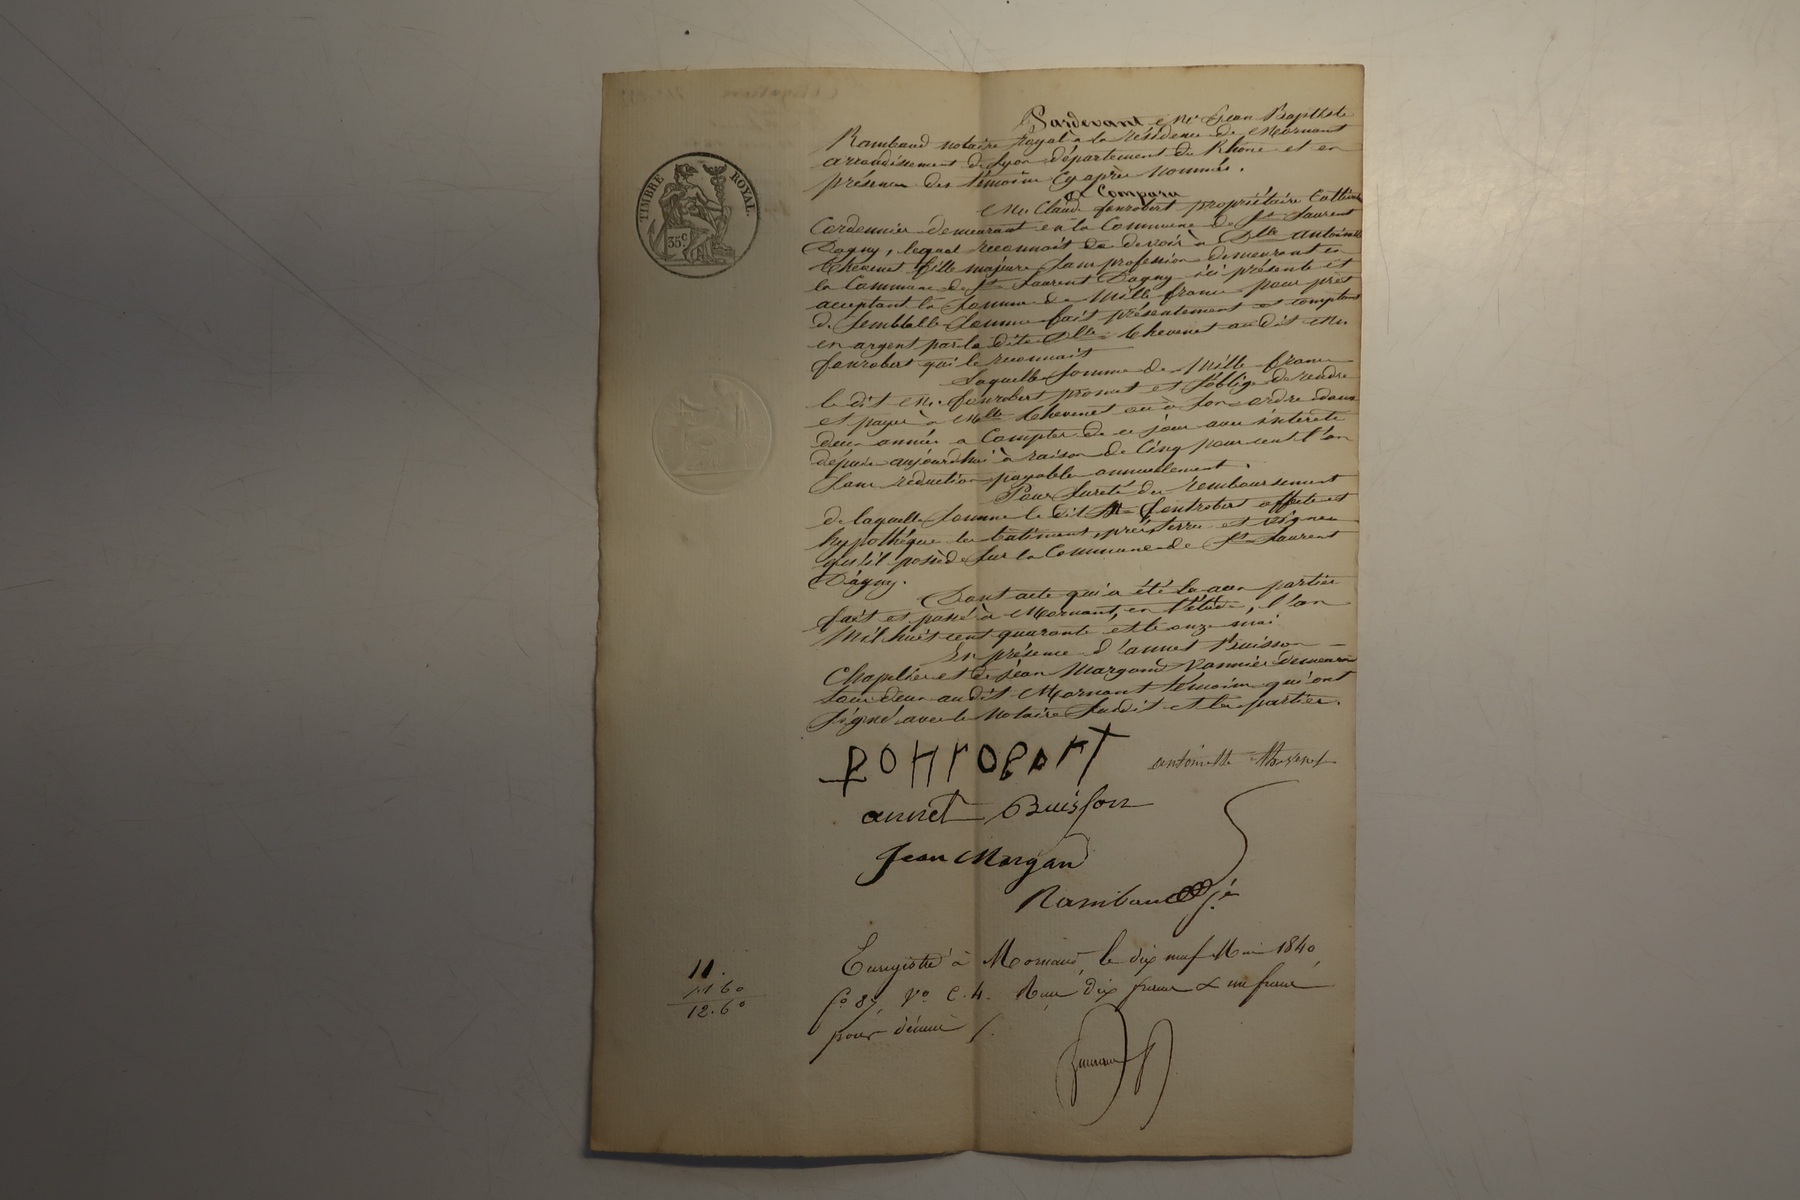 TIMBRE ROYAL.
35c
Pardevant Me Jean Baptiste
Rambaud notaire Royal à la résidence de Mornant
arondissement de Lyon département du Rhône et en
présence des témoins cy après nommés.
à Comparu
Mr. Claude fonrobert propriétaire
Cordonnier demeurant en la Commune de St Laurent
Dagny, lequel reconnait de devoir à Dlle antoinette
Chevenet fille majeure sans profession demeurant en
la Commune de St Laurent Dagny ici présente et
acceptant la somme de Mille francs pour prêt
de semblable somme fait présentement et comptant
en argent par la dite Dlle Chevenet au dit Mr.
fonrobert qui le reconnait
Laquelle somme de Mille francs
le dit Mr. fonrobert promet et s'oblige de rendre
et payer à Mlle Chevenet ou à son ordre dans
deux années a Compter de ce jour avec intérêts
depuis aujourdhui à raison de Cinq pour cent l'an
sans réduction payable annuellement.
Pour sureté du remboursement
de laquelle somme le dit Mr fontrobert affecte et
hypothéque les batiments, prés, terres et vignes
qu'il possède sur la Commune de St Laurent
Dagny.
Dont acte qui a été lu aux parties
fait et passé à Mornant, en l'étude, l'an
Mil huit cent quarante et le onze mai
En présence d'annet Buisson
Chapelier et de Jean Margand Vannier demeurant
tous deux au dit Mornant témoins qui ont
signé avec le Notaire susdit et les parties.
antoinette
annet Buisson
Jean Margand
Rambaud
Enregistré à Mornant, le dix neuf Mai 1840
fo 87 Vo C. 4. Reçu dix francs & un franc
pour décime
11.
1.60
12.60